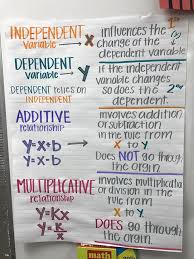 INDEPENDENT variable → x
influences the change of the dependent variable.
1st
DEPENDENT variable → y
DEPENDENT relies on INDEPENDENT
if the independent variable changes so does the dependent.
2nd
ADDITIVE relationship
y=x+b
y=x-b
involves addition or subtraction in the rule from x to y
Does NOT go through the orgin.
MULTIPLICATIVE relationship
y=Kx
y=x/K
involves multiplication or division in the rule from x to y
DOES go through the orgin.
math